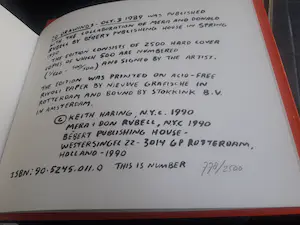 12 DRAWINGS - OCT. 3 1989 WAS PUBLISHED
IN THE COLLABORATION OF MERA AND DONALD
RUBELL BY BÉBERT PUBLISHING HOUSE IN SPRING
THE EDITION CONSISTS OF 2500 HARD COVER
COPIES OF WHICH 500 ARE NUMBERED
(1/500 - 500/500) AND SIGNED BY THE ARTIST.
THE EDITION WAS PRINTED ON ACID-FREE
RIVOLI PAPER BY NIEUWE GRAFISCHE IN
ROTTERDAM AND BOUND BY STOKKINK B.V.
IN AMSTERDAM.
© KEITH HARING, N.Y.C. 1990
MERA + DON RUBELL, NYC 1990
BÉBERT PUBLISHING HOUSE -
WESTERSINGEL 22 - 3014 GP ROTTERDAM,
HOLLAND - 1990
ISBN: 90.5245.011.0 THIS IS NUMBER /2500